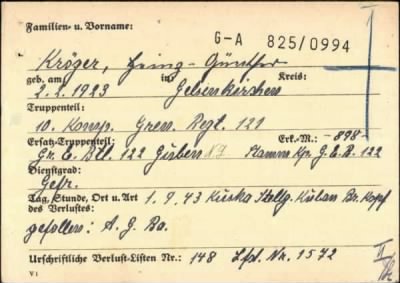 Familien- u. Vorname:
G-A 825/0994
Kröger, Heinz-Günther
geb. am in Kreis:
2.2.1923 Gelsenkirchen
Truppenteil:
10. Komp. Gren. Regt. 121
Ersatz-Truppenteil: Erk.-M.: -898-
Gr. E. Btl. 122 Guben Stamm Kp. G.E.B. 122
Dienstgrad:
Gefr.
Tag, Stunde, Ort u. Art 1.9.43 Stellg. Kuban Br. Kopf
des Verlustes:
gefallen: A.G.
Urschriftliche Verlust-Listen Nr.: 148 Lfd. Nr. 1572
V 1